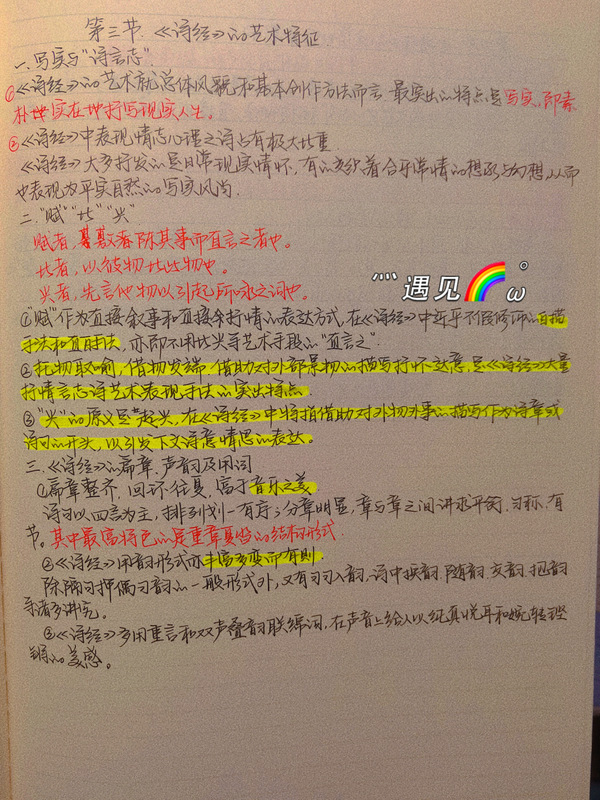 第三节 《诗经》的艺术特征
一、写实与"诗言志".
①《诗经》的艺术就总体风貌和基本创作方法而言,最突出的特点是写实,即素
朴地实在地抒写现实人生。
②《诗经》中表现情志心理之诗占有极大比重
《诗经》大多抒发的是日常现实情怀,有的交织着合乎常情的想象与幻想,从而
也表现为平实自然的写实风尚.
二、"赋""比""兴"
赋者,敷陈其事而直言之者也。
比者,以彼物比此物也。
兴者,先言他物以引起所咏之词也。
遇见🌈°ω
①"赋"作为直接叙事和直接抒情的表达方式,在《诗经》中近乎不假修饰的白描
手法和直陈法,亦即不用比兴等艺术手段的"直言之".
②托物取喻,借物发端,借助对外部景物的描写抒怀达意是《诗经》大量
抒情言志诗艺术表现手法的突出特点
③"兴"的原义是"起兴,在《诗经》中特指借助对外物外事的描写作为诗章或
诗的开头,以引发下文诗意情思的表达
三、《诗经》的篇章、声韵及用词
①篇章整齐、回环往复、富于音乐之美
诗句以四言为主,排列划一有序;分章明显,章与章之间讲求平衡、匀称、有
节。其中最富特色的是重章叠唱的结构形式.
②《诗经》用韵形式亦丰富多变而有则.
除隔句押偶句韵的一般形式外,又有句句入韵、诗中换韵、随韵、交韵、抱韵
等诸多讲究。
③《诗经》多用重言和双声叠韵联绵词,在声音上给人以纯真悦耳和婉转铿
锵的美感。